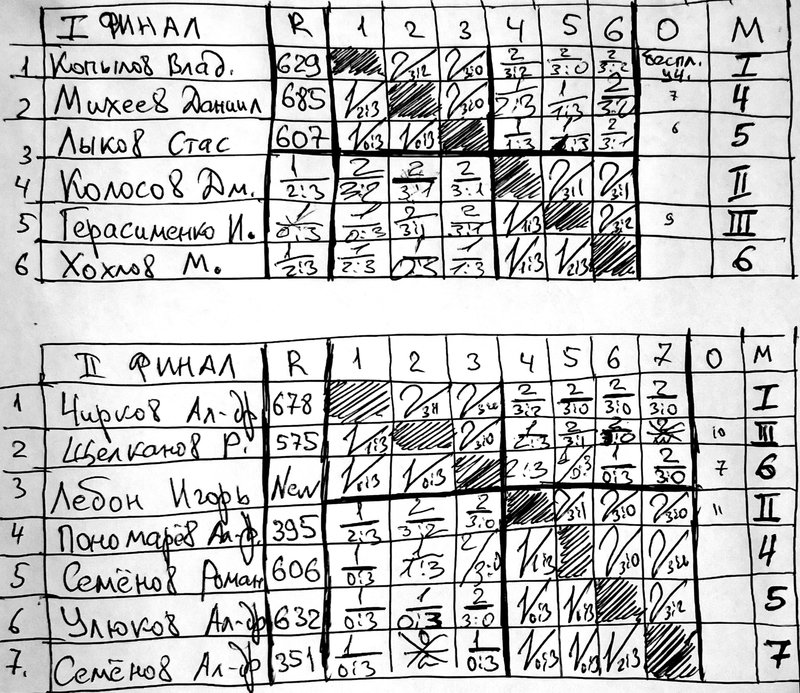 I ФИНАЛ R 1 2 3 4 5 6 О М
1 Копылов Влад. 629 2 3:2 2 3:0 2 3:2 2 3:0 2 3:2 беспл. уч. I
2 Михеев Даниил 685 1 2:3 2 3:0 1 2:3 1 1:3 2 3:0 7 4
3 Лыков Стас 607 1 0:3 1 0:3 1 1:3 1 1:3 2 3:1 6 5
4 Колосов Дм. 1 2:3 2 3:2 2 3:1 2 3:1 2 3:1 2 3:1 II
5 Герасименко И. 1 0:3 1 0:3 2 3:1 2 3:1 1 1:3 2 3:2 9 III
6 Хохлов М. 1 2:3 1 2:3 1 0:3 1 1:3 1 1:3 1 2:3 6
II ФИНАЛ R 1 2 3 4 5 6 7 О М
1 Чирков Ал-др 678 2 3:1 2 2 3:2 2 3:0 2 3:0 2 3:0 I
2 Щелканов Р. 575 1 1:3 2 3:0 1 2:3 2 3:1 2 3:0 10 III
3 Лебон Игорь New 1 0:3 1 0:3 2:3 0:3 1 0:3 2 3:0 7 6
4 Пономарёв Ал-др 395 1 2:3 2 3:2 2 3:0 2 3:1 2 3:0 2 3:0 11 II
5 Семёнов Роман 606 1 0:3 1 1:3 2 3:0 1 1:3 2 3:0 2 4
6 Улюков Ал-др 632 1 0:3 1 0:3 2 3:0 1 0:3 1 0:3 2 3:2 5
7. Семёнов Ал-др 351 1 0:3 0 1 0:3 1 0:3 1 0:3 1 2:3 7